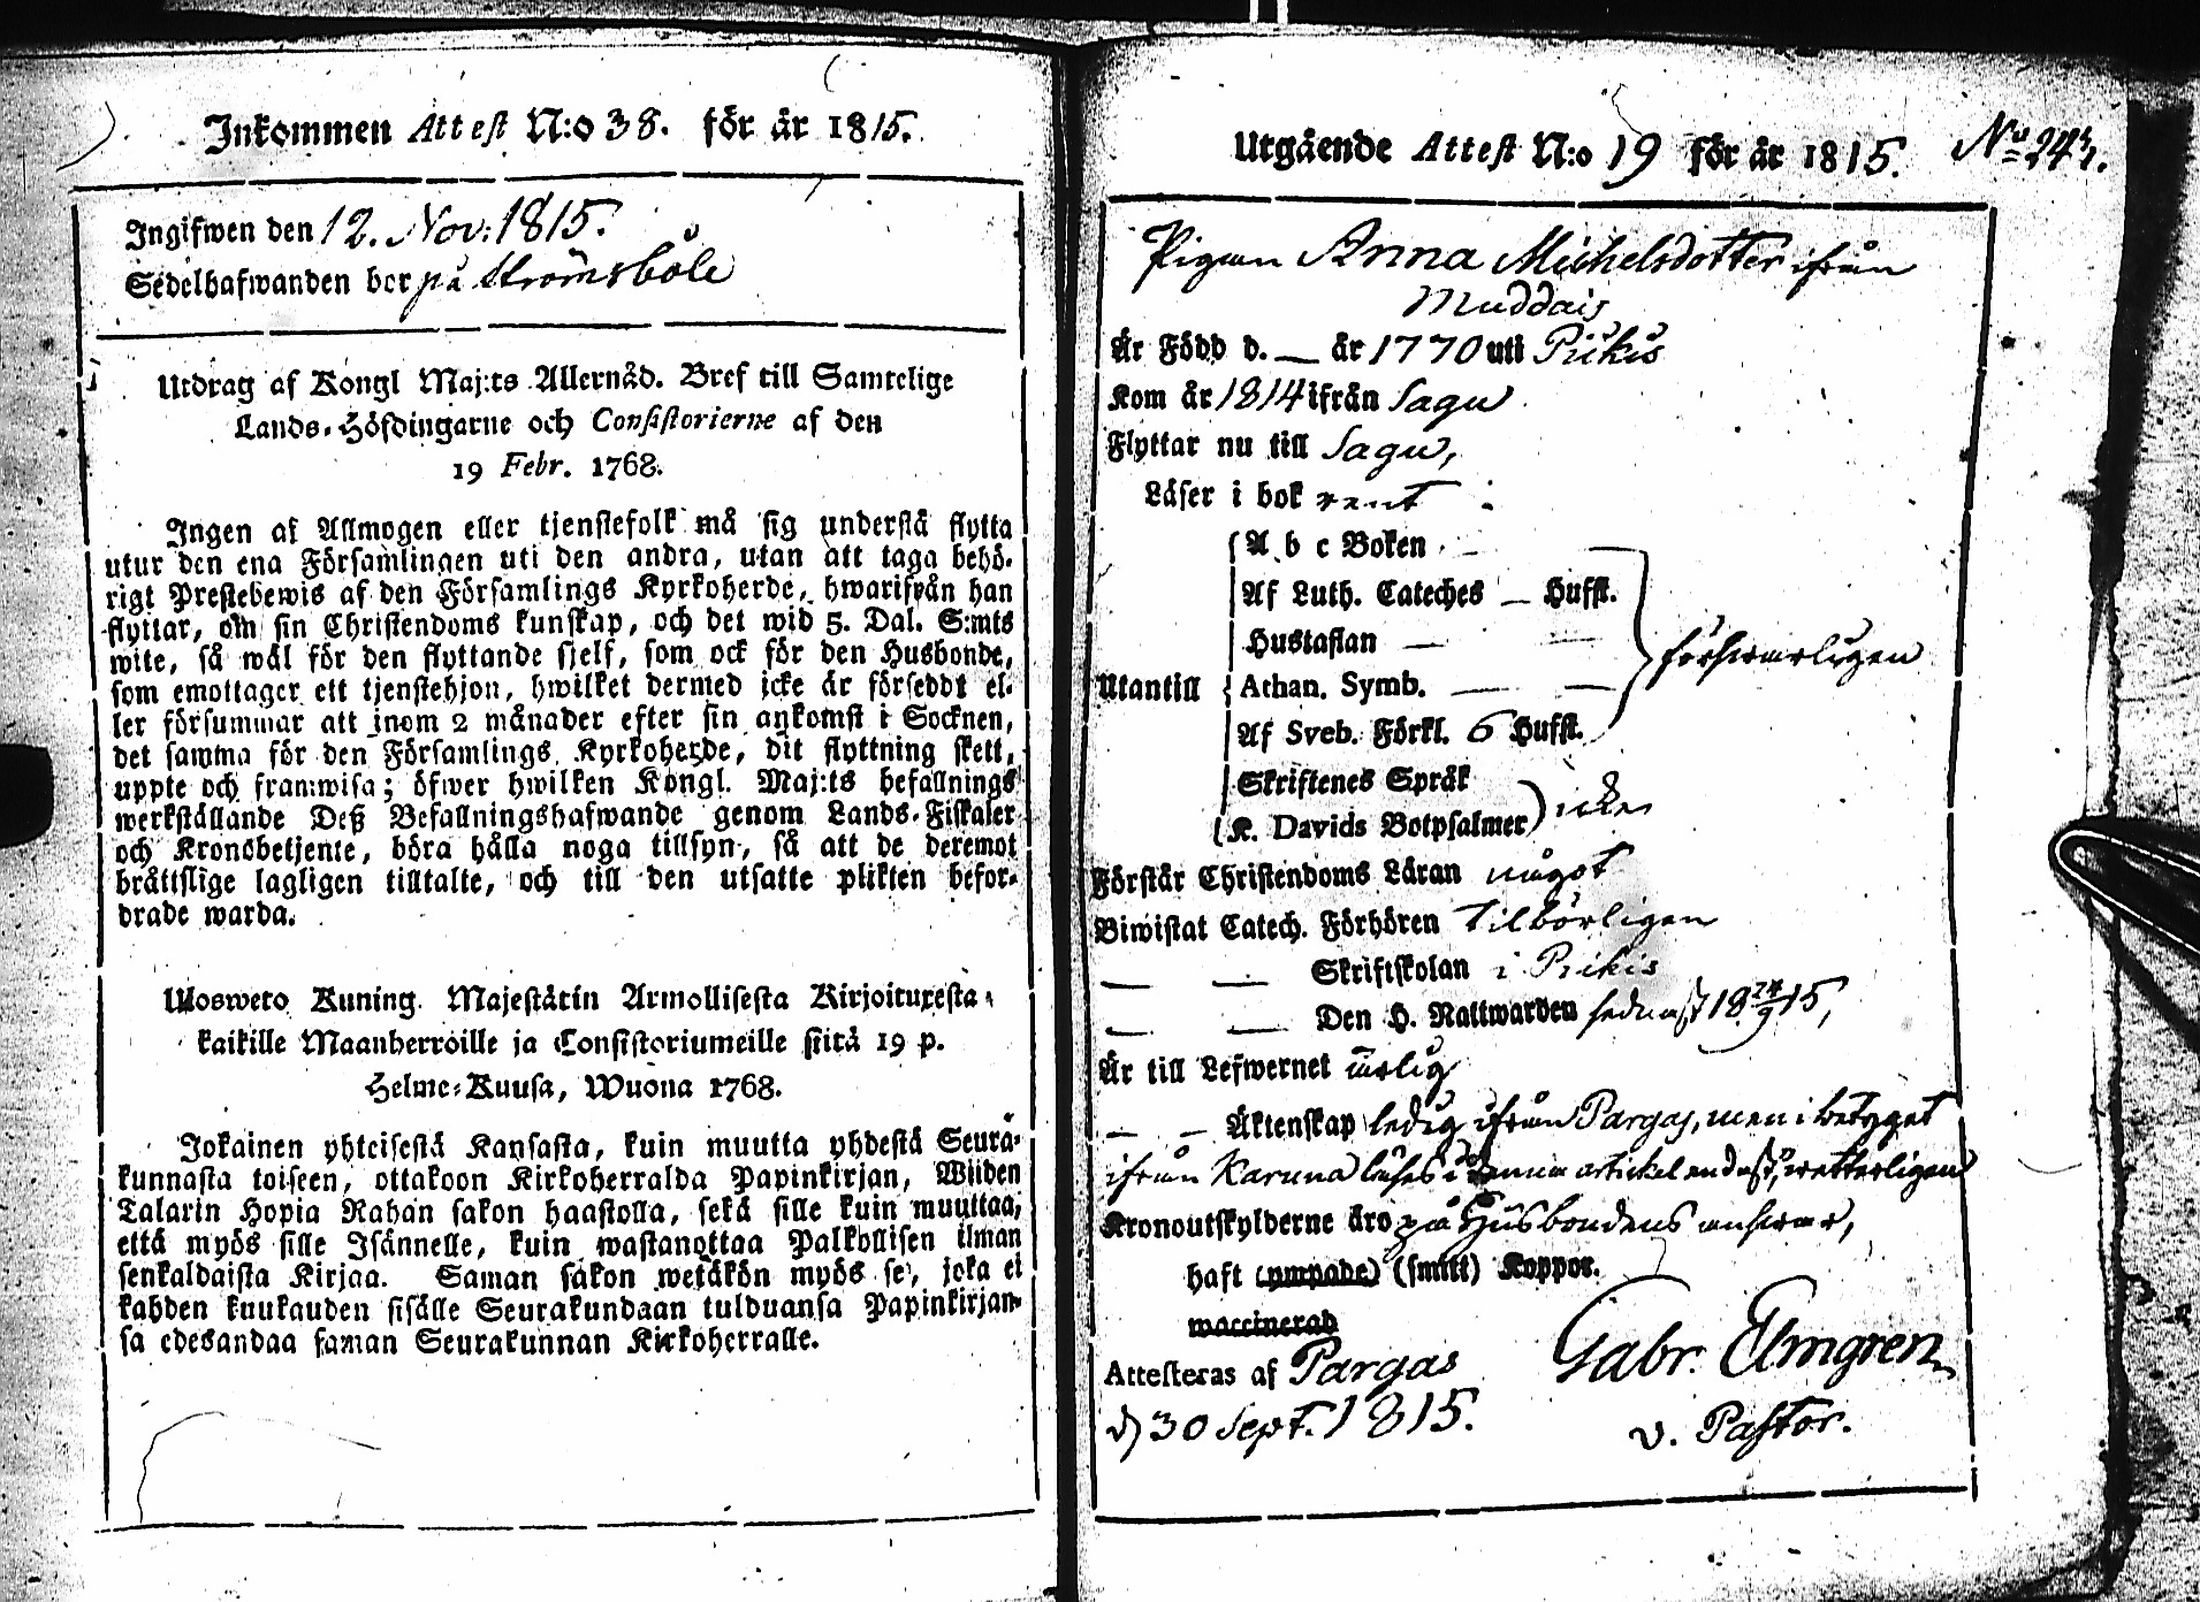 Inkommen Attest N:o 38. för år 1815.
Ingifwen den 12. Nov: 1815.
Sedelhafwanden bor på Strömsböle
Utdrag af Kongl Maj:ts Allernåd. Bref till Samtelige
Lands-Höfdingarne och Consistorierne af den
19 Febr. 1768.
Ingen af Allmogen eller tjenstefolk må sig understå flytta
utur den ena Församlingen uti den andra, utan att taga behö-
rigt Prestebewis af den Församlings Kyrkoherde, hwarifrån han
flyttar, om sin Christendoms kunskap, och det wid 5. Dal. S:mts
wite, så wäl för den flyttande sjelf, som ock för den Husbonde,
som emottager ett tjenstehjon, hwilket dermed icke är förseddt el-
ler försummar att inom 2 månader efter sin ankomst i Socknen,
det samma för den Församlings Kyrkoherde, dit flyttning skett,
uppte och framwisa; öfwer hwilken Kongl. Maj:ts befallnings
werkställande Deß Befallningshafwande genom Lands-Fiskaler
och Kronobetjente, böra hålla noga tillsyn, så att de deremot
bråttslige lagligen tilltalte, och till den utsatte plikten befor-
drade warda.
Uloswetö Kuning. Majestätin Armollisesta Kirjoituxesta
kaikille Maanherroille ja Consistoriumeille siitä 19 p.
Helme-Kuusa, Wuona 1768.
Jokainen yhteisestä Kansasta, kuin muutta yhdestä Seura-
kunnasta toiseen, ottakoon Kirkoherralda Papinkirjan, Wiiden
Talarin Hopia Rahan sakon haastolla, sekä sille kuin muuttaa,
että myös sille Isännelle, kuin wastanottaa Palkollisen ilman
senkaldaista Kirjaa. Saman sakon wetäkön myös se, joka ei
kahden kuukauden sisälle Seurakundaan tulduansa Papinkirjan-
sa edesandaa saman Seurakunnan Kirkoherralle.
Utgående Attest N:o 19 för år 1815. No
Pigan Anna Michelsdotter ifrån
Muddais
Är Född d. — år 1770 uti Pikis
Kom år 1814 ifrån Sagu
Flyttar nu till Sagu,
Läser i bok rent
A b c Boken —
Af Luth. Cateches — Huffst.
Hustaflan —
försvarligen
Utantill Athan. Symb. —
Af Sveb. Förkl. 6 Huffst.
Skriftenes Språk
K. Davids Botpsalmer icke
Förstår Christendoms Läran något
Biwistat Catech. Förhören tilbörligen
— — Skriftskolan i Pikis
— — Den H. Nattwarden sednast 18 24/9 15,
Är till Lefwernet ärlig
— — Äktenskap ledig ifrån Pargas, men i betyget
ifrån Karuna låfes i denna artickel endast, wetterligen
Kronoutskylderne äro på Husbondens answar,
haft (ympade) (smitt) Koppor.
waccinerad
Attesteras af Pargas Gabr. Elmgren
d 30 Sept. 1815. v. Pastor.